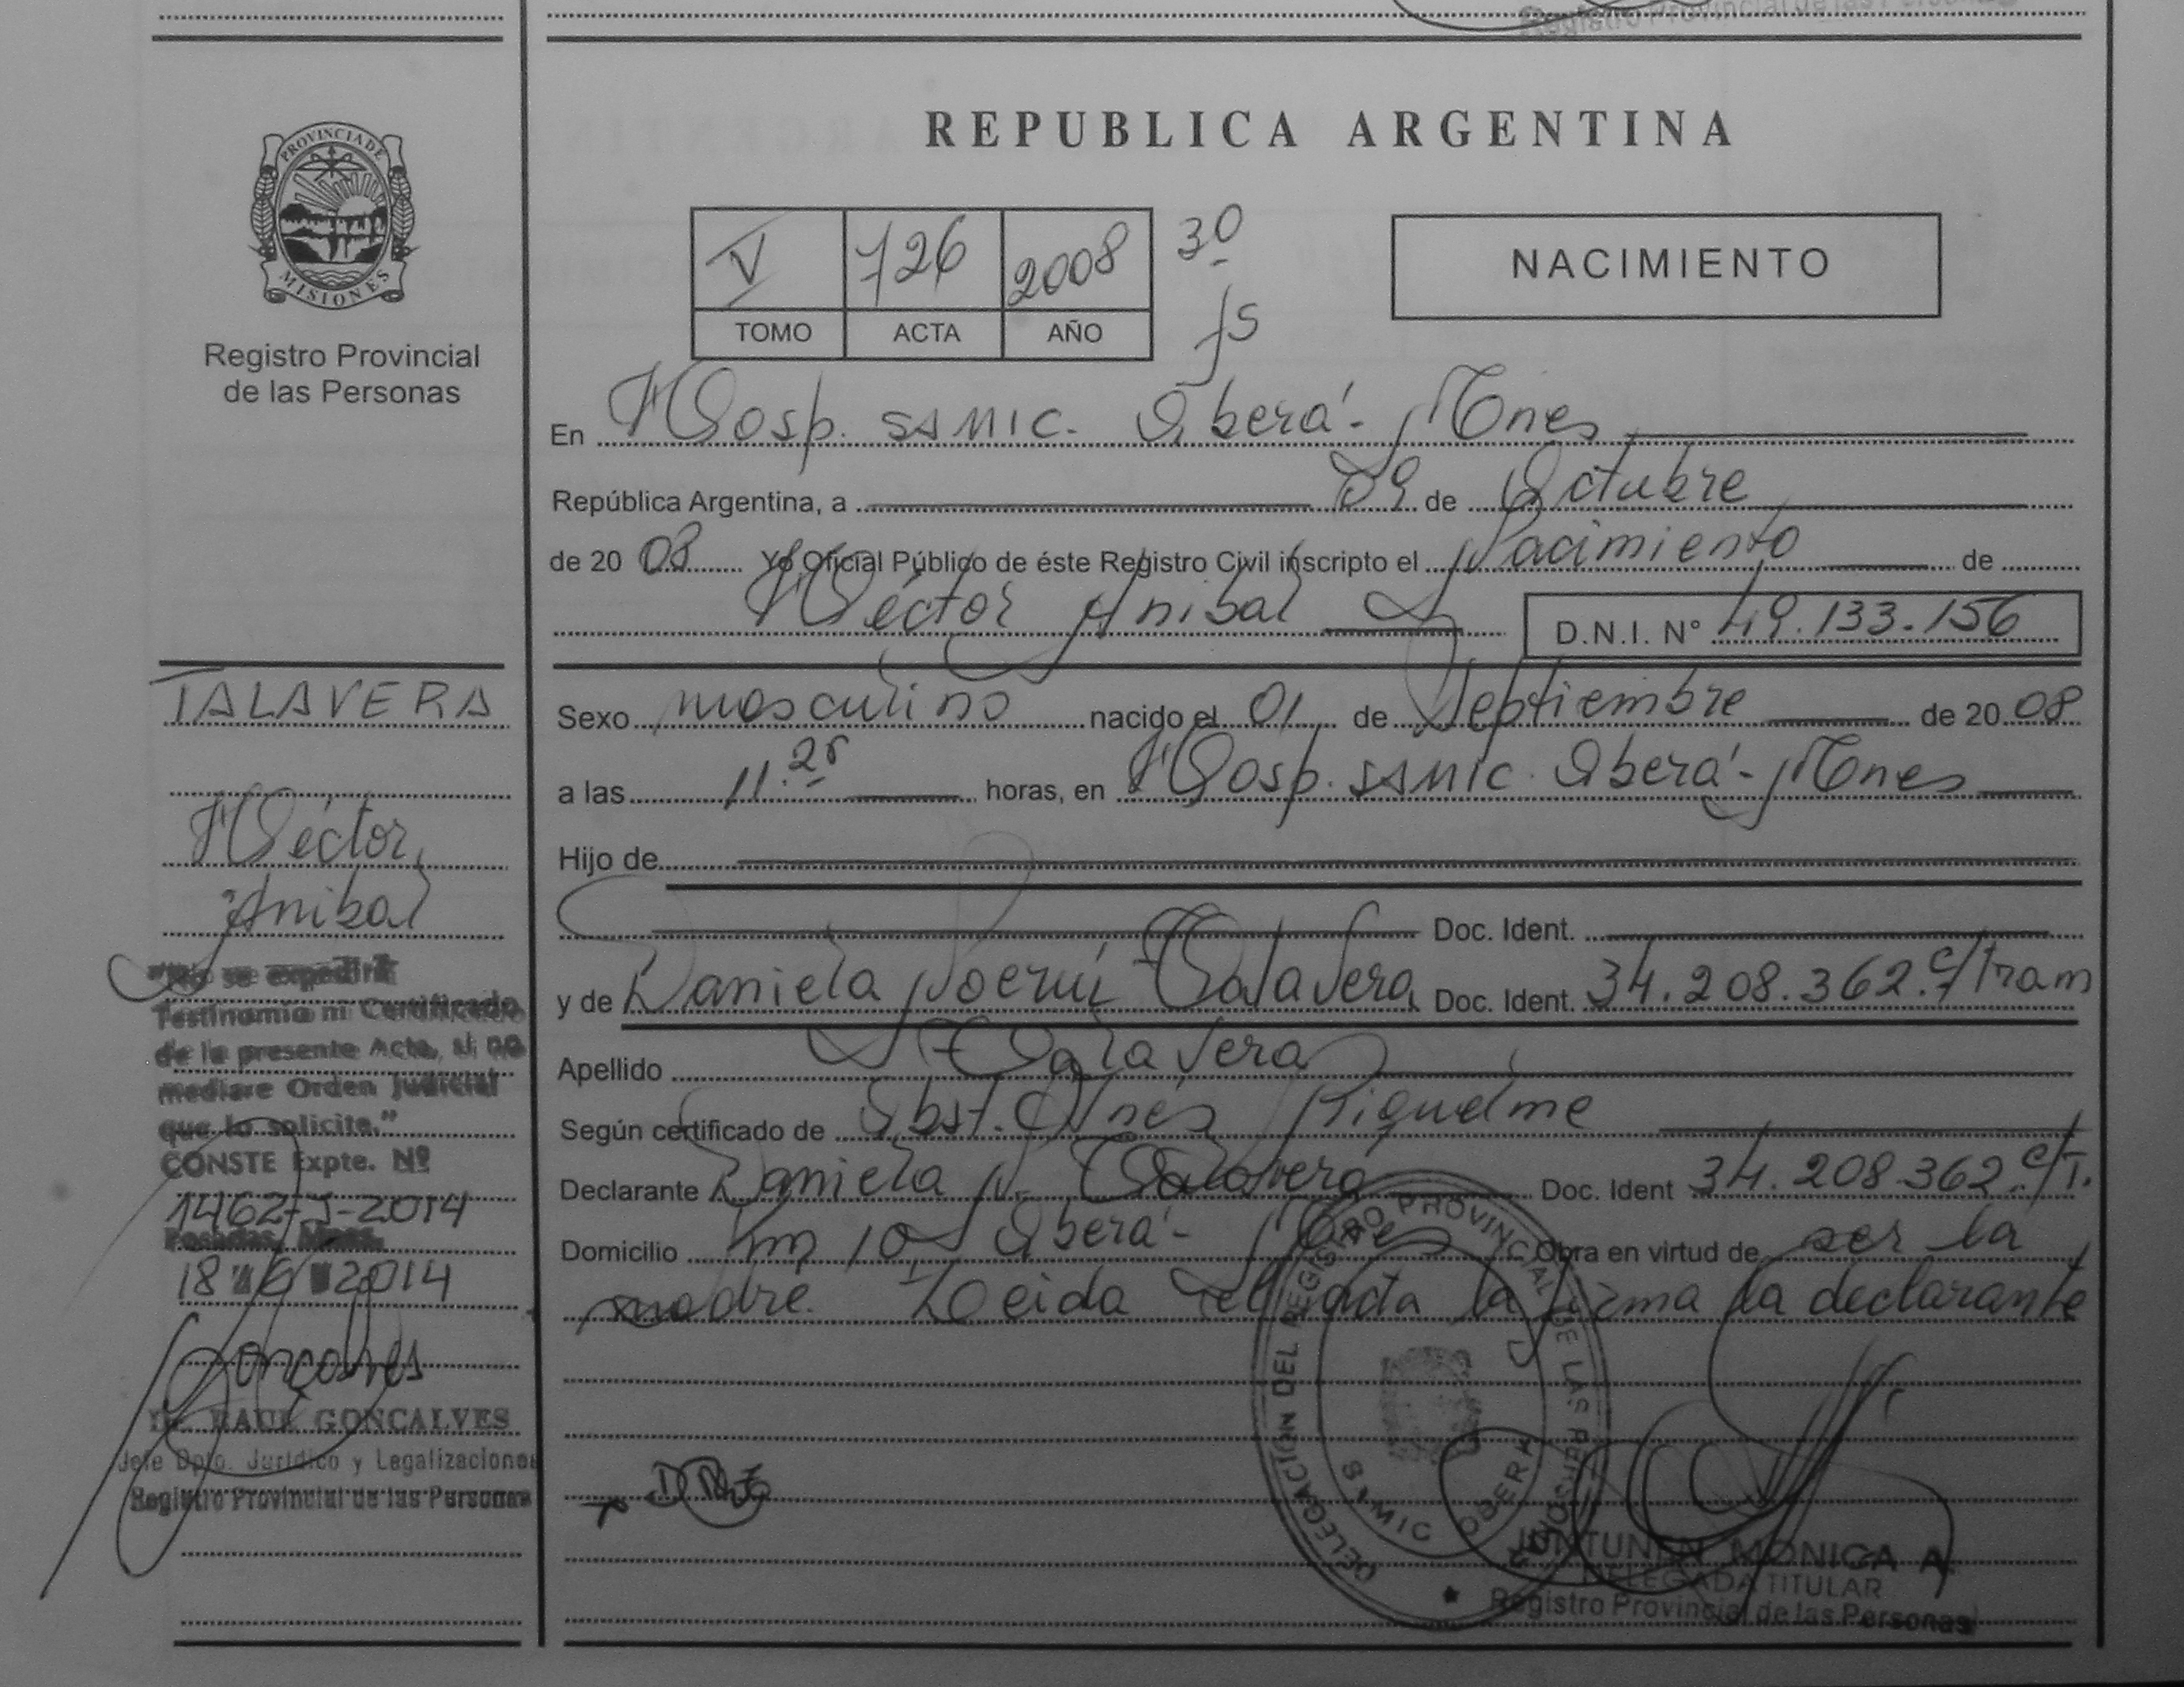 REPUBLICA ARGENTINA
PROVINCIA DE
MISIONES
Registro Provincial
de las Personas
V 726 2008 30
TOMO ACTA AÑO fs
NACIMIENTO
En Hosp. SAMIC. Oberá - Mnes
República Argentina, a 09 de Octubre
de 20 08 Yo Oficial Público de éste Registro Civil inscripto el Nacimiento de
Héctor Anibal D.N.I. N° 49.133.156
Sexo masculino nacido el 01 de Septiembre de 20 08
a las 11.25 horas, en Hosp. SAMIC. Oberá - Mnes
Hijo de
Doc. Ident.
y de Daniela Noemí Talavera Doc. Ident. 34.208.362.c/Tram
Apellido Talavera
Según certificado de Obst. Inés Riquelme
Declarante Daniela N. Talavera Doc. Ident 34.208.362 c/T.
Domicilio Km 10 Oberá - Mnes Obra en virtud de ser la
madre. Leida el acta la firma la declarante
TALAVERA
Héctor
Anibal
"No se expedirá
Testimonio ni Certificado
de la presente Acta, si no
mediare Orden Judicial
que lo solicite."
CONSTE Expte. Nº
1462-J-2014
Posadas, Mnes.
18 6 2014
Goncalves
Dr. RAUL GONCALVES
Jefe Dpto. Jurídico y Legalizaciones
Registro Provincial de las Personas
DELEGACION DEL REGISTRO PROVINCIAL DE LAS PERSONAS
SAMIC OBERA
JUNTUNEN MONICA A.
DELEGADA TITULAR
Registro Provincial de las Personas